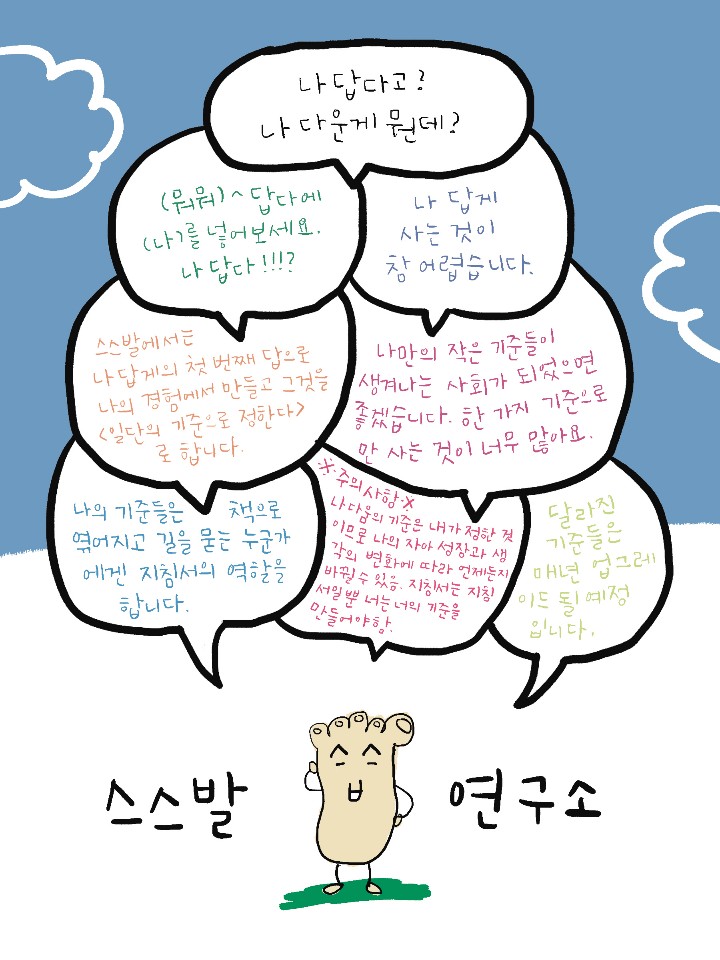 나 답다고?
나 다운게 뭔데?
(뭐뭐)^답다에
(나)를 넣어보세요.
나 답다!!!?
나 답게
사는 것이
참 어렵습니다.
스스발에서는
나 답게의 첫 번째 답으로
나의 경험에서 만들고 그것을
<일단의 기준으로 정한다>
로 합니다.
나만의 작은 기준들이
생겨나는 사회가 되었으면
좋겠습니다. 한 가지 기준으로
만 사는 것이 너무 많아요.
나의 기준들은 책으로
엮어지고 길을 묻는 누군가
에겐 지침서의 역할을
합니다.
※주의사항※
나다움의 기준은 내가 정한 것
이므로 나의 자아 성장과 생
각의 변화에 따라 언제든지
바뀔 수 있음. 지침서는 지침
서일 뿐 너는 너의 기준을
만들어야함.
달라진
기준들은
매년 업그레
이드 될 예정
입니다.
스스발 연구소